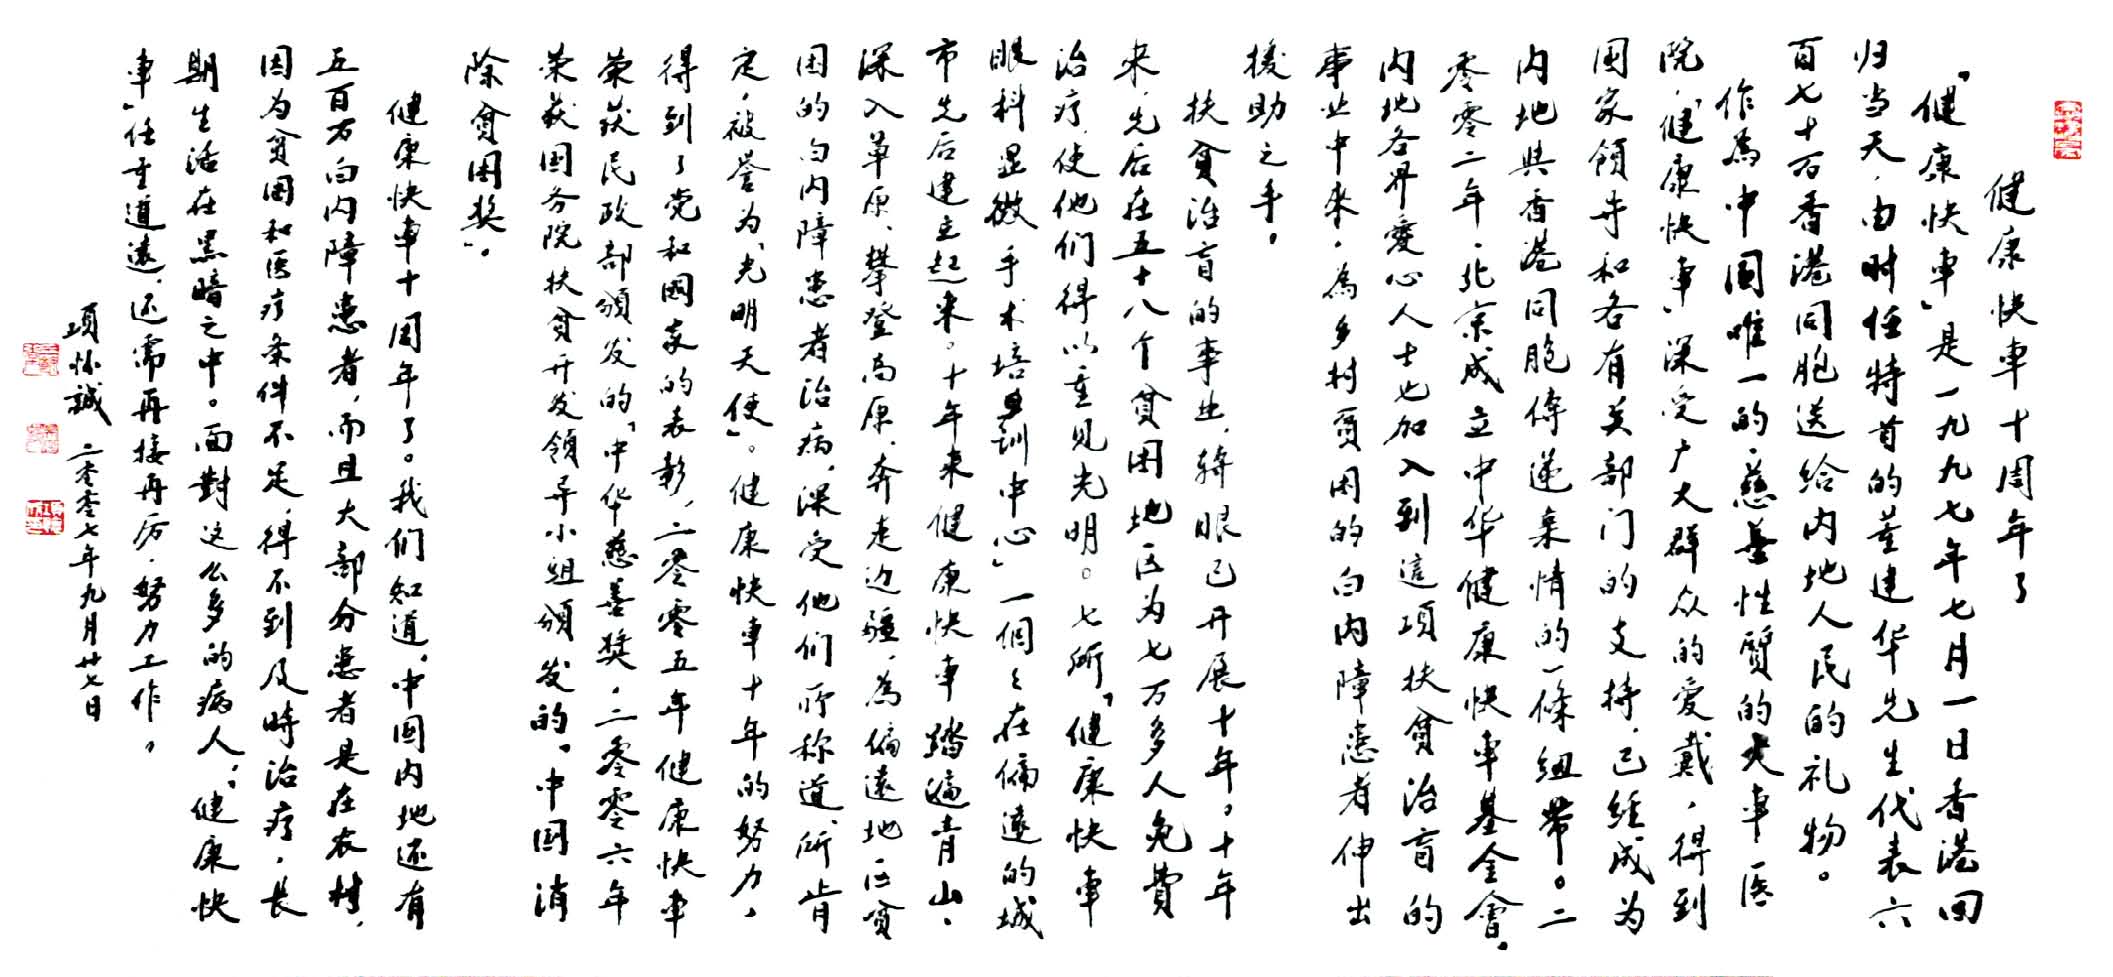 健康快車十周年了
「健康快車」是一九九七年七月一日香港回
归当天，由时任特首的董建华先生代表六
百七十万香港同胞送给内地人民的礼物。
作為中国唯一的、慈善性質的火車医
院，「健康快車」深受广大群众的愛戴，得到
国家领导和各有关部门的支持，已经成为
内地與香港同胞傳递亲情的一條紐带。二
零零二年，北京成立中华健康快車基金會，
内地各界愛心人士也加入到這項扶貧治盲的
事业中来，為乡村貧困的白内障患者伸出
援助之手。
扶貧治盲的事业，转眼已开展十年。十年
来，先后在五十八个貧困地区为七万多人免費
治疗，使他们得以重见光明。七所「健康快車
眼科显微手术培训中心」一個々在偏遠的城
市先后建立起来。十年来健康快車踏遍青山、
深入草原、攀登高原、奔走边疆，為偏遠地区貧
困的白内障患者治病，深受他们所称道、所肯
定，被誉为「光明天使」。健康快車十年的努力，
得到了党和國家的表彰，二零零五年健康快車
荣获民政部頒发的「中华慈善奖」，二零零六年
荣获国务院扶貧开发领导小组頒发的「中国消
除貧困奖」。
健康快車十周年了。我们知道，中国内地还有
五百万白内障患者，而且大部分患者是在农村，
因为貧困和医疗条件不足，得不到及時治疗，長
期生活在黑暗之中。面對这么多的病人，「健康快
車」任重道遠，还需再接再厉，努力工作。
項怀誠 二零零七年九月廿七日